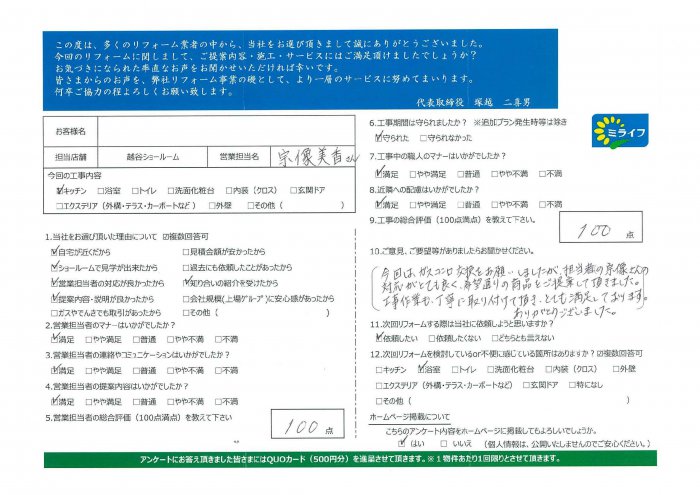 この度は、多くのリフォーム業者の中から、当社をお選び頂きまして誠にありがとうございました。
今回のリフォームに関しまして、ご提案内容・施工・サービスにはご満足頂けましたでしょうか?
お気づきになられた率直なお声をお聞かせいただければ幸いです。
皆さまからのお声を、弊社リフォーム事業の礎として、より一層のサービスに努めてまいります。
何卒ご協力の程よろしくお願い致します。
代表取締役 塚越 二喜男
ミライフ
お客様名
担当店舗 越谷ショールーム 営業担当名 宗像美香さん
今回の工事内容
☑キッチン □浴室 □トイレ □洗面化粧台 □内装(クロス) □玄関ドア
□エクステリア(外構・テラス・カーポートなど) □外壁 □その他( )
1.当社をお選び頂いた理由について ☑複数回答可
☑自宅が近くだから □見積金額が安かったから
☑ショールームで見学が出来たから □過去にも依頼したことがあったから
☑営業担当者の対応が良かったから ☑知り合いの紹介を受けたから
☑提案内容・説明が良かったから □会社規模(上場グループ)に安心感があったから
□ガスやでんきでも取引があったから □その他( )
2.営業担当者のマナーはいかがでしたか?
☑満足 □やや満足 □普通 □やや不満 □不満
3.営業担当者の連絡やコミュニケーションはいかがでしたか?
☑満足 □やや満足 □普通 □やや不満 □不満
4.営業担当者の提案内容はいかがでしたか?
☑満足 □やや満足 □普通 □やや不満 □不満
5.営業担当者の総合評価(100点満点)を教えて下さい
100 点
6.工事期間は守られましたか? ※追加プラン発生時等は除き
☑守られた □守られなかった
7.工事中の職人のマナーはいかがでしたか?
☑満足 □やや満足 □普通 □やや不満 □不満
8.近隣への配慮はいかがでしたか?
☑満足 □やや満足 □普通 □やや不満 □不満
9.工事の総合評価(100点満点)を教えて下さい。
100 点
10.ご意見、ご要望等がありましたらお聞かせください。
今回は、ガスコンロ交換をお願いしましたが、担当者の宗像さんの
対応がとても良く、希望通りの商品をご提案して頂きました。
工事作業も、丁寧に取り付けて頂き、とても満足しております。
ありがとうございました。
11.次回リフォームする際は当社に依頼しようと思いますか?
☑依頼したい □依頼したくない □どちらとも言えない
12.次回リフォームを検討しているor不便に感じている箇所はありますか? ☑複数回答可
□キッチン ☑浴室 □トイレ □洗面化粧台 □内装(クロス) □外壁
□エクステリア(外構・テラス・カーポートなど) □玄関ドア □特になし
□その他( )
ホームページ掲載について
こちらのアンケート内容をホームページに掲載してもよろしいでしょうか。
☑はい □いいえ (個人情報は、公開いたしませんのでご安心ください。)
アンケートにお答え頂きました皆さまにはQUOカード(500円分)を進呈させて頂きます。※1物件あたり1回限りとさせて頂きます。